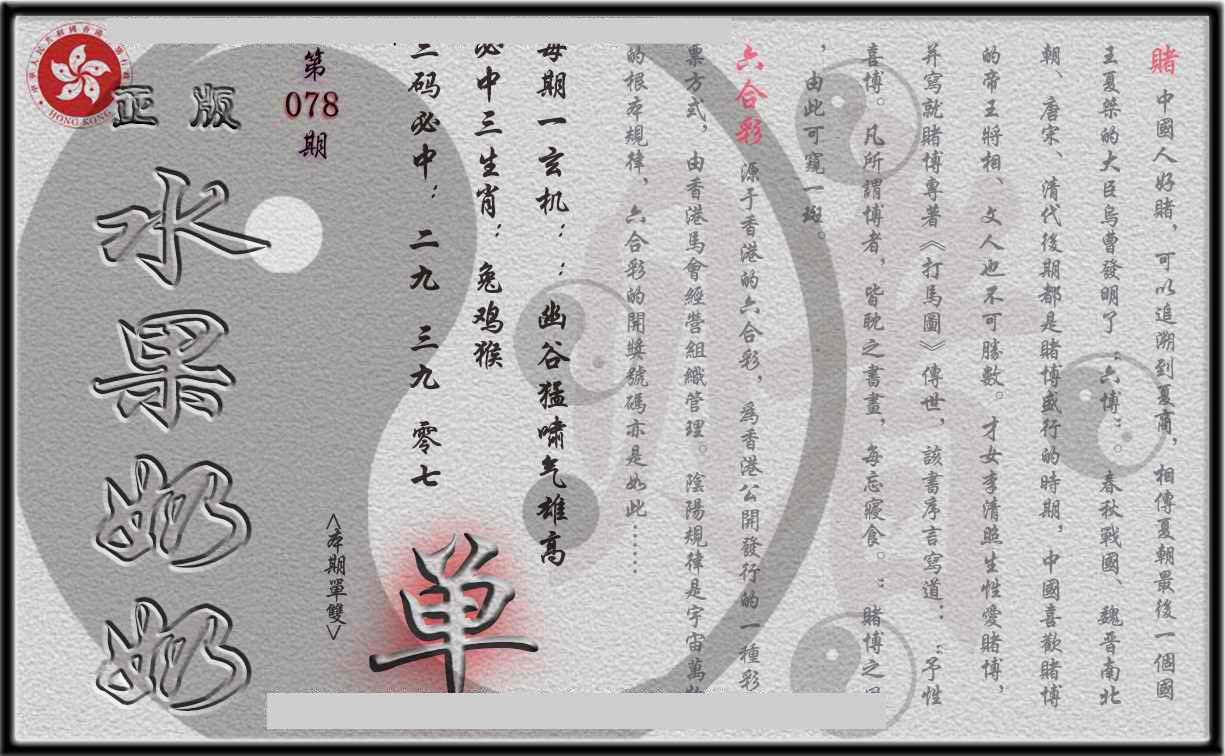 賭 中國人好賭，可以追溯到夏商，相傳夏朝最後一個國
王夏桀的大臣烏曹發明了“六博”。春秋戰國、魏晉南北
朝、唐宋、清代後期都是賭博盛行的時期，中國喜歡賭博
的帝王將相、文人也不可勝數。才女李清照生性愛賭博，
并寫就賭博專著《打馬圖》傳世，該書序言寫道：“予性
喜博。凡所謂博者，皆耽之晝，每忘寢食。”賭博之
，由此可窺一斑。
六合彩 源于香港的六合彩，為香港公開發行的一種彩
票方式，由香港馬會經營組織管理。陰陽規律是宇宙萬
的根本規律，六合彩的開獎號碼亦是如此……
每期一玄机：：幽谷猛啸气雄高
必中三生肖：兔鸡猴
三码必中：二九 三九 零七
第
078
期
<本期單雙>
单
正版
水果奶奶
HONG KONG